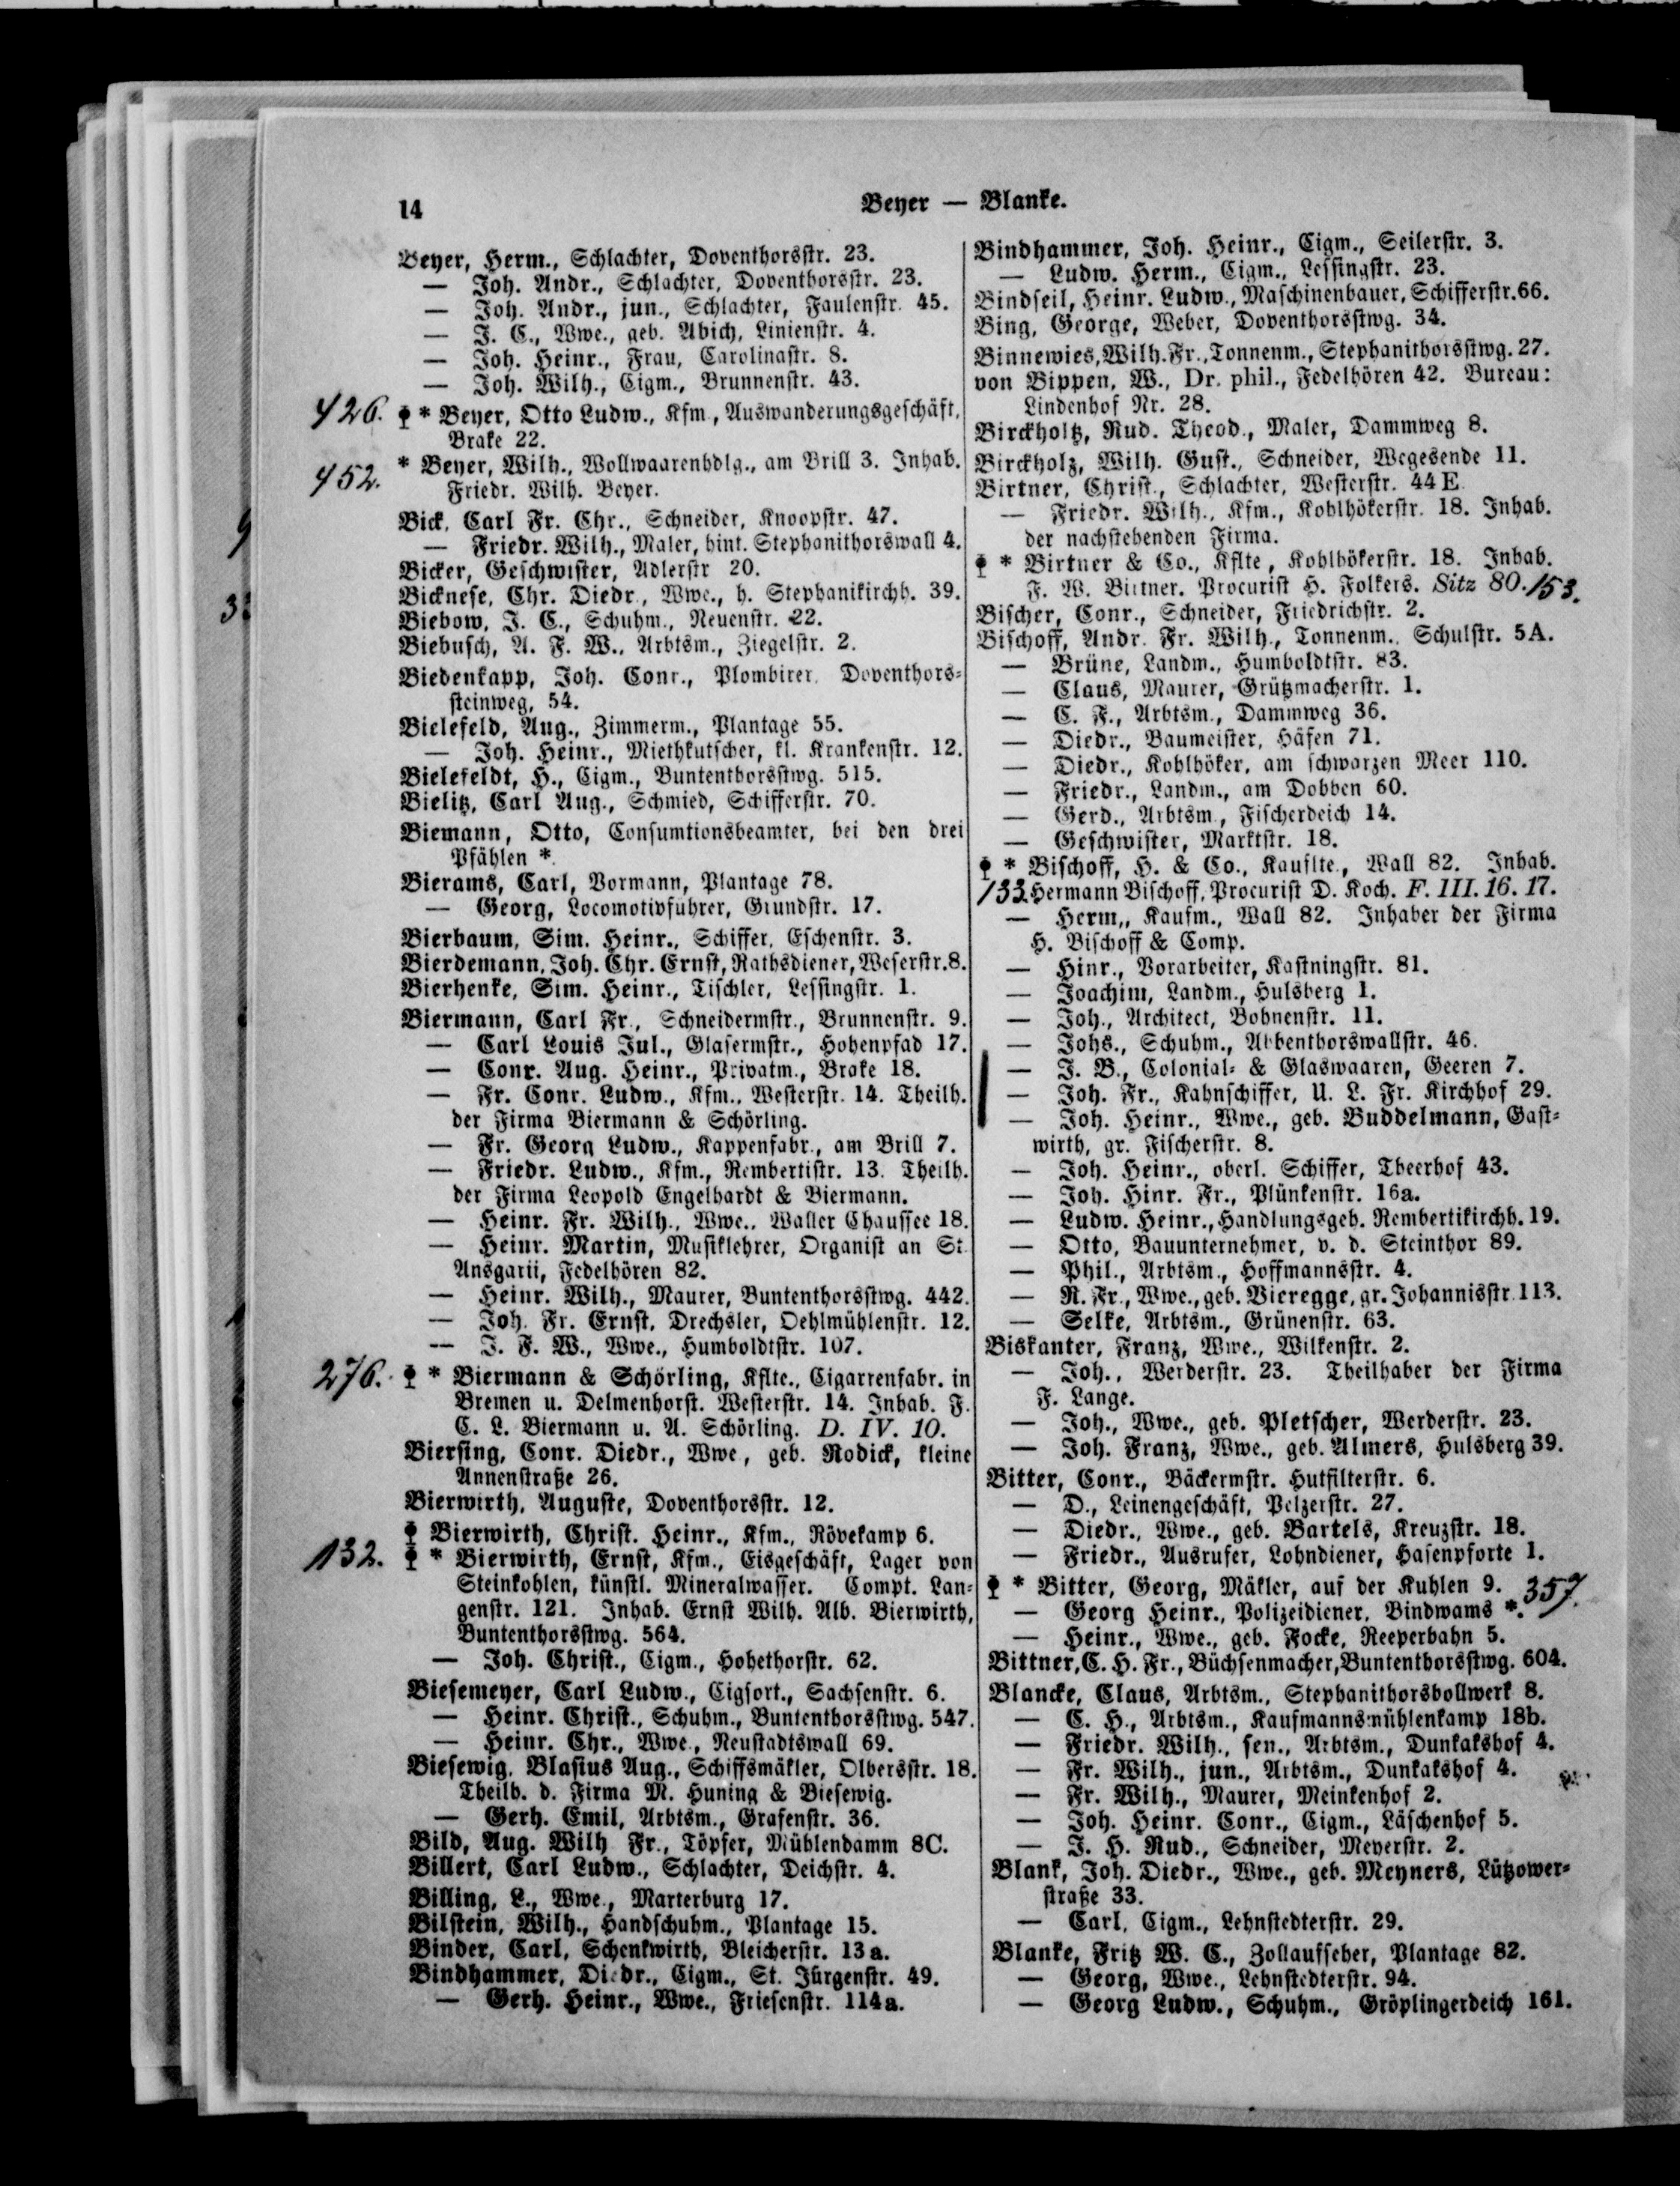 14
Beyer — Blanke.
Beyer, Herm., Schlachter, Doventhorsstr. 23.
— Joh. Andr., Schlachter, Doventhorsstr. 23.
— Joh. Andr., jun., Schlachter, Faulenstr. 45.
— J. C., Wwe., geb. Abich, Linienstr. 4.
— Joh. Heinr., Frau, Carolinastr. 8.
— Joh. Wilh., Cigm., Brunnenstr. 43.
426. * Beyer, Otto Ludw., Kfm., Auswanderungsgeschäft,
Brake 22.
452. * Beyer, Wilh., Wollwaarenhdlg., am Brill 3. Inhab.
Friedr. Wilh. Beyer.
Bick, Carl Fr. Chr., Schneider, Knoopstr. 47.
— Friedr. Wilh., Maler, hint. Stephanithorswall 4.
Bicker, Geschwister, Adlerstr 20.
Bicknese, Chr. Diedr., Wwe., h. Stephanikirchh. 39.
Biebow, J. C., Schuhm., Neuenstr. 22.
Biebusch, A. F. W., Arbtsm., Ziegelstr. 2.
Biedenkapp, Joh. Conr., Plombirer, Doventhors-
steinweg, 54.
Bielefeld, Aug., Zimmerm., Plantage 55.
— Joh. Heinr., Miethkutscher, kl. Krankenstr. 12.
Bielefeldt, H., Cigm., Buntenthorsstwg. 515.
Bielitz, Carl Aug., Schmied, Schifferstr. 70.
Biemann, Otto, Consumtionsbeamter, bei den drei
Pfählen *.
Bierams, Carl, Vormann, Plantage 78.
— Georg, Locomotivführer, Grundstr. 17.
Bierbaum, Sim. Heinr., Schiffer, Eschenstr. 3.
Bierdemann, Joh. Chr. Ernst, Rathsdiener, Weserstr. 8.
Bierhenke, Sim. Heinr., Tischler, Lessingstr. 1.
Biermann, Carl Fr., Schneidermstr., Brunnenstr. 9.
— Carl Louis Jul., Glasermstr., Hohenpfad 17.
— Conr. Aug. Heinr., Privatm., Brake 18.
— Fr. Conr. Ludw., Kfm., Westerstr. 14. Theilh.
der Firma Biermann & Schörling.
— Fr. Georg Ludw., Kappenfabr., am Brill 7.
— Friedr. Ludw., Kfm., Rembertistr. 13. Theilh.
der Firma Leopold Engelhardt & Biermann.
— Heinr. Fr. Wilh., Wwe., Waller Chaussee 18.
— Heinr. Martin, Musiklehrer, Organist an St.
Ansgarii, Fedelhören 82.
— Heinr. Wilh., Maurer, Buntenthorsstwg. 442.
— Joh. Fr. Ernst, Drechsler, Oehlmühlenstr. 12.
— J. F. W., Wwe., Humboldtstr. 107.
276. * Biermann & Schörling, Kflte., Cigarrenfabr. in
Bremen u. Delmenhorst. Westerstr. 14. Inhab. F.
C. L. Biermann u. A. Schörling. D. IV. 10.
Biersing, Conr. Diedr., Wwe, geb. Rodick, kleine
Annenstraße 26.
Bierwirth, Auguste, Doventhorsstr. 12.
Bierwirth, Christ. Heinr., Kfm., Rövekamp 6.
132. * Bierwirth, Ernst, Kfm., Eisgeschäft, Lager von
Steinkohlen, künstl. Mineralwasser. Compt. Lan-
genstr. 121. Inhab. Ernst Wilh. Alb. Bierwirth,
Buntenthorsstwg. 564.
— Joh. Christ., Cigm., Hohethorstr. 62.
Biesemeyer, Carl Ludw., Cigsort., Sachsenstr. 6.
— Heinr. Christ., Schuhm., Buntenthorsstwg. 547.
— Heinr. Chr., Wwe., Neustadtswall 69.
Biesewig, Blasius Aug., Schiffsmäkler, Olbersstr. 18.
Theilh. d. Firma M. Huning & Biesewig.
— Gerh. Emil, Arbtsm., Grafenstr. 36.
Bild, Aug. Wilh Fr., Töpfer, Mühlendamm 8C.
Billert, Carl Ludw., Schlachter, Deichstr. 4.
Billing, L., Wwe., Marterburg 17.
Bilstein, Wilh., Handschuhm., Plantage 15.
Binder, Carl, Schenkwirth, Bleicherstr. 13a.
Bindhammer, Diedr., Cigm., St. Jürgenstr. 49.
— Gerh. Heinr., Wwe., Friesenstr. 114a.
Bindhammer, Joh. Heinr., Cigm., Seilerstr. 3.
— Ludw. Herm., Cigm., Lessingstr. 23.
Bindseil, Heinr. Ludw., Maschinenbauer, Schifferstr. 66.
Bing, George, Weber, Doventhorsstwg. 34.
Binnewies, Wilh. Fr., Tonnenm., Stephanithorsstwg. 27.
von Bippen, W., Dr. phil., Fedelhören 42. Bureau:
Lindenhof Nr. 28.
Birckholtz, Rud. Theod., Maler, Dammweg 8.
Birckholz, Wilh. Gust., Schneider, Wegesende 11.
Birtner, Christ., Schlachter, Westerstr. 44 E.
— Friedr. Wilh., Kfm., Kohlhökerstr. 18. Inhab.
der nachstehenden Firma.
* Birtner & Co., Kflte, Kohlhökerstr. 18. Inhab.
F. W. Birtner. Procurist H. Folkers. Sitz 80. 153.
Bischer, Conr., Schneider, Friedrichstr. 2.
Bischoff, Andr. Fr. Wilh., Tonnenm., Schulstr. 5A.
— Brüne, Landm., Humboldtstr. 83.
— Claus, Maurer, Grützmacherstr. 1.
— C. F., Arbtsm., Dammweg 36.
— Diedr., Baumeister, Häfen 71.
— Diedr., Kohlhöker, am schwarzen Meer 110.
— Friedr., Landm., am Dobben 60.
— Gerd., Arbtsm., Fischerdeich 14.
— Geschwister, Marktstr. 18.
* Bischoff, H. & Co., Kauflte., Wall 82. Inhab.
133. Hermann Bischoff, Procurist D. Koch. F. III. 16. 17.
— Herm,, Kaufm., Wall 82. Inhaber der Firma
H. Bischoff & Comp.
— Hinr., Vorarbeiter, Kastningstr. 81.
— Joachim, Landm., Hulsberg 1.
— Joh., Architect, Bohnenstr. 11.
— Johs., Schuhm., Abbenthorswallstr. 46.
— J. B., Colonial- & Glaswaaren, Geeren 7.
— Joh. Fr., Kahnschiffer, U. L. Fr. Kirchhof 29.
— Joh. Heinr., Wwe., geb. Buddelmann, Gast-
wirth, gr. Fischerstr. 8.
— Joh. Heinr., oberl. Schiffer, Theerhof 43.
— Joh. Hinr. Fr., Plünkenstr. 16a.
— Ludw. Heinr., Handlungsgeh. Rembertikirchh. 19.
— Otto, Bauunternehmer, v. d. Steinthor 89.
— Phil., Arbtsm., Hoffmannsstr. 4.
— R. Fr., Wwe., geb. Vieregge, gr. Johannisstr. 113.
— Selke, Arbtsm., Grünenstr. 63.
Biskanter, Franz, Wwe., Wilkenstr. 2.
— Joh., Werderstr. 23. Theilhaber der Firma
F. Lange.
— Joh., Wwe., geb. Pletscher, Werderstr. 23.
— Joh. Franz, Wwe., geb. Almers, Hulsberg 39.
Bitter, Conr., Bäckermstr. Hutfilterstr. 6.
— D., Leinengeschäft, Pelzerstr. 27.
— Diedr., Wwe., geb. Bartels, Kreuzstr. 18.
— Friedr., Ausrufer, Lohndiener, Hasenpforte 1.
* Bitter, Georg, Mäkler, auf der Kuhlen 9. 357.
— Georg Heinr., Polizeidiener, Bindwams *.
— Heinr., Wwe., geb. Focke, Reeperbahn 5.
Bittner, C. H. Fr., Büchsenmacher, Buntenthorsstwg. 604.
Blancke, Claus, Arbtsm., Stephanithorsbollwerk 8.
— C. H., Arbtsm., Kaufmannsmühlenkamp 18b.
— Friedr. Wilh., sen., Arbtsm., Dunkakshof 4.
— Fr. Wilh., jun., Arbtsm., Dunkakshof 4.
— Fr. Wilh., Maurer, Meinkenhof 2.
— Joh. Heinr. Conr., Cigm., Läschenhof 5.
— J. H. Rud., Schneider, Meyerstr. 2.
Blank, Joh. Diedr., Wwe., geb. Meyners, Lützower-
straße 33.
— Carl, Cigm., Lehnstedterstr. 29.
Blanke, Fritz W. C., Zollaufseher, Plantage 82.
— Georg, Wwe., Lehnstedterstr. 94.
— Georg Ludw., Schuhm., Gröplingerdeich 161.